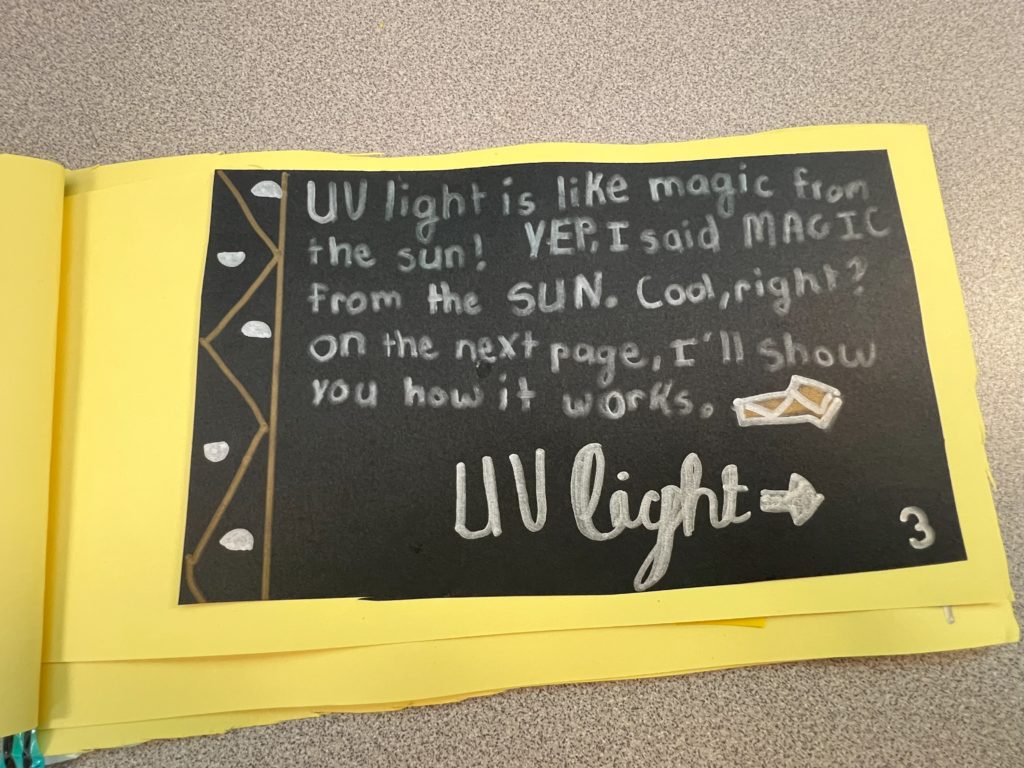 UV light is like magic from
the sun! YEP, I said MAGIC
from the SUN. Cool, right?
on the next page, I'll show
you how it works.
UV light
3